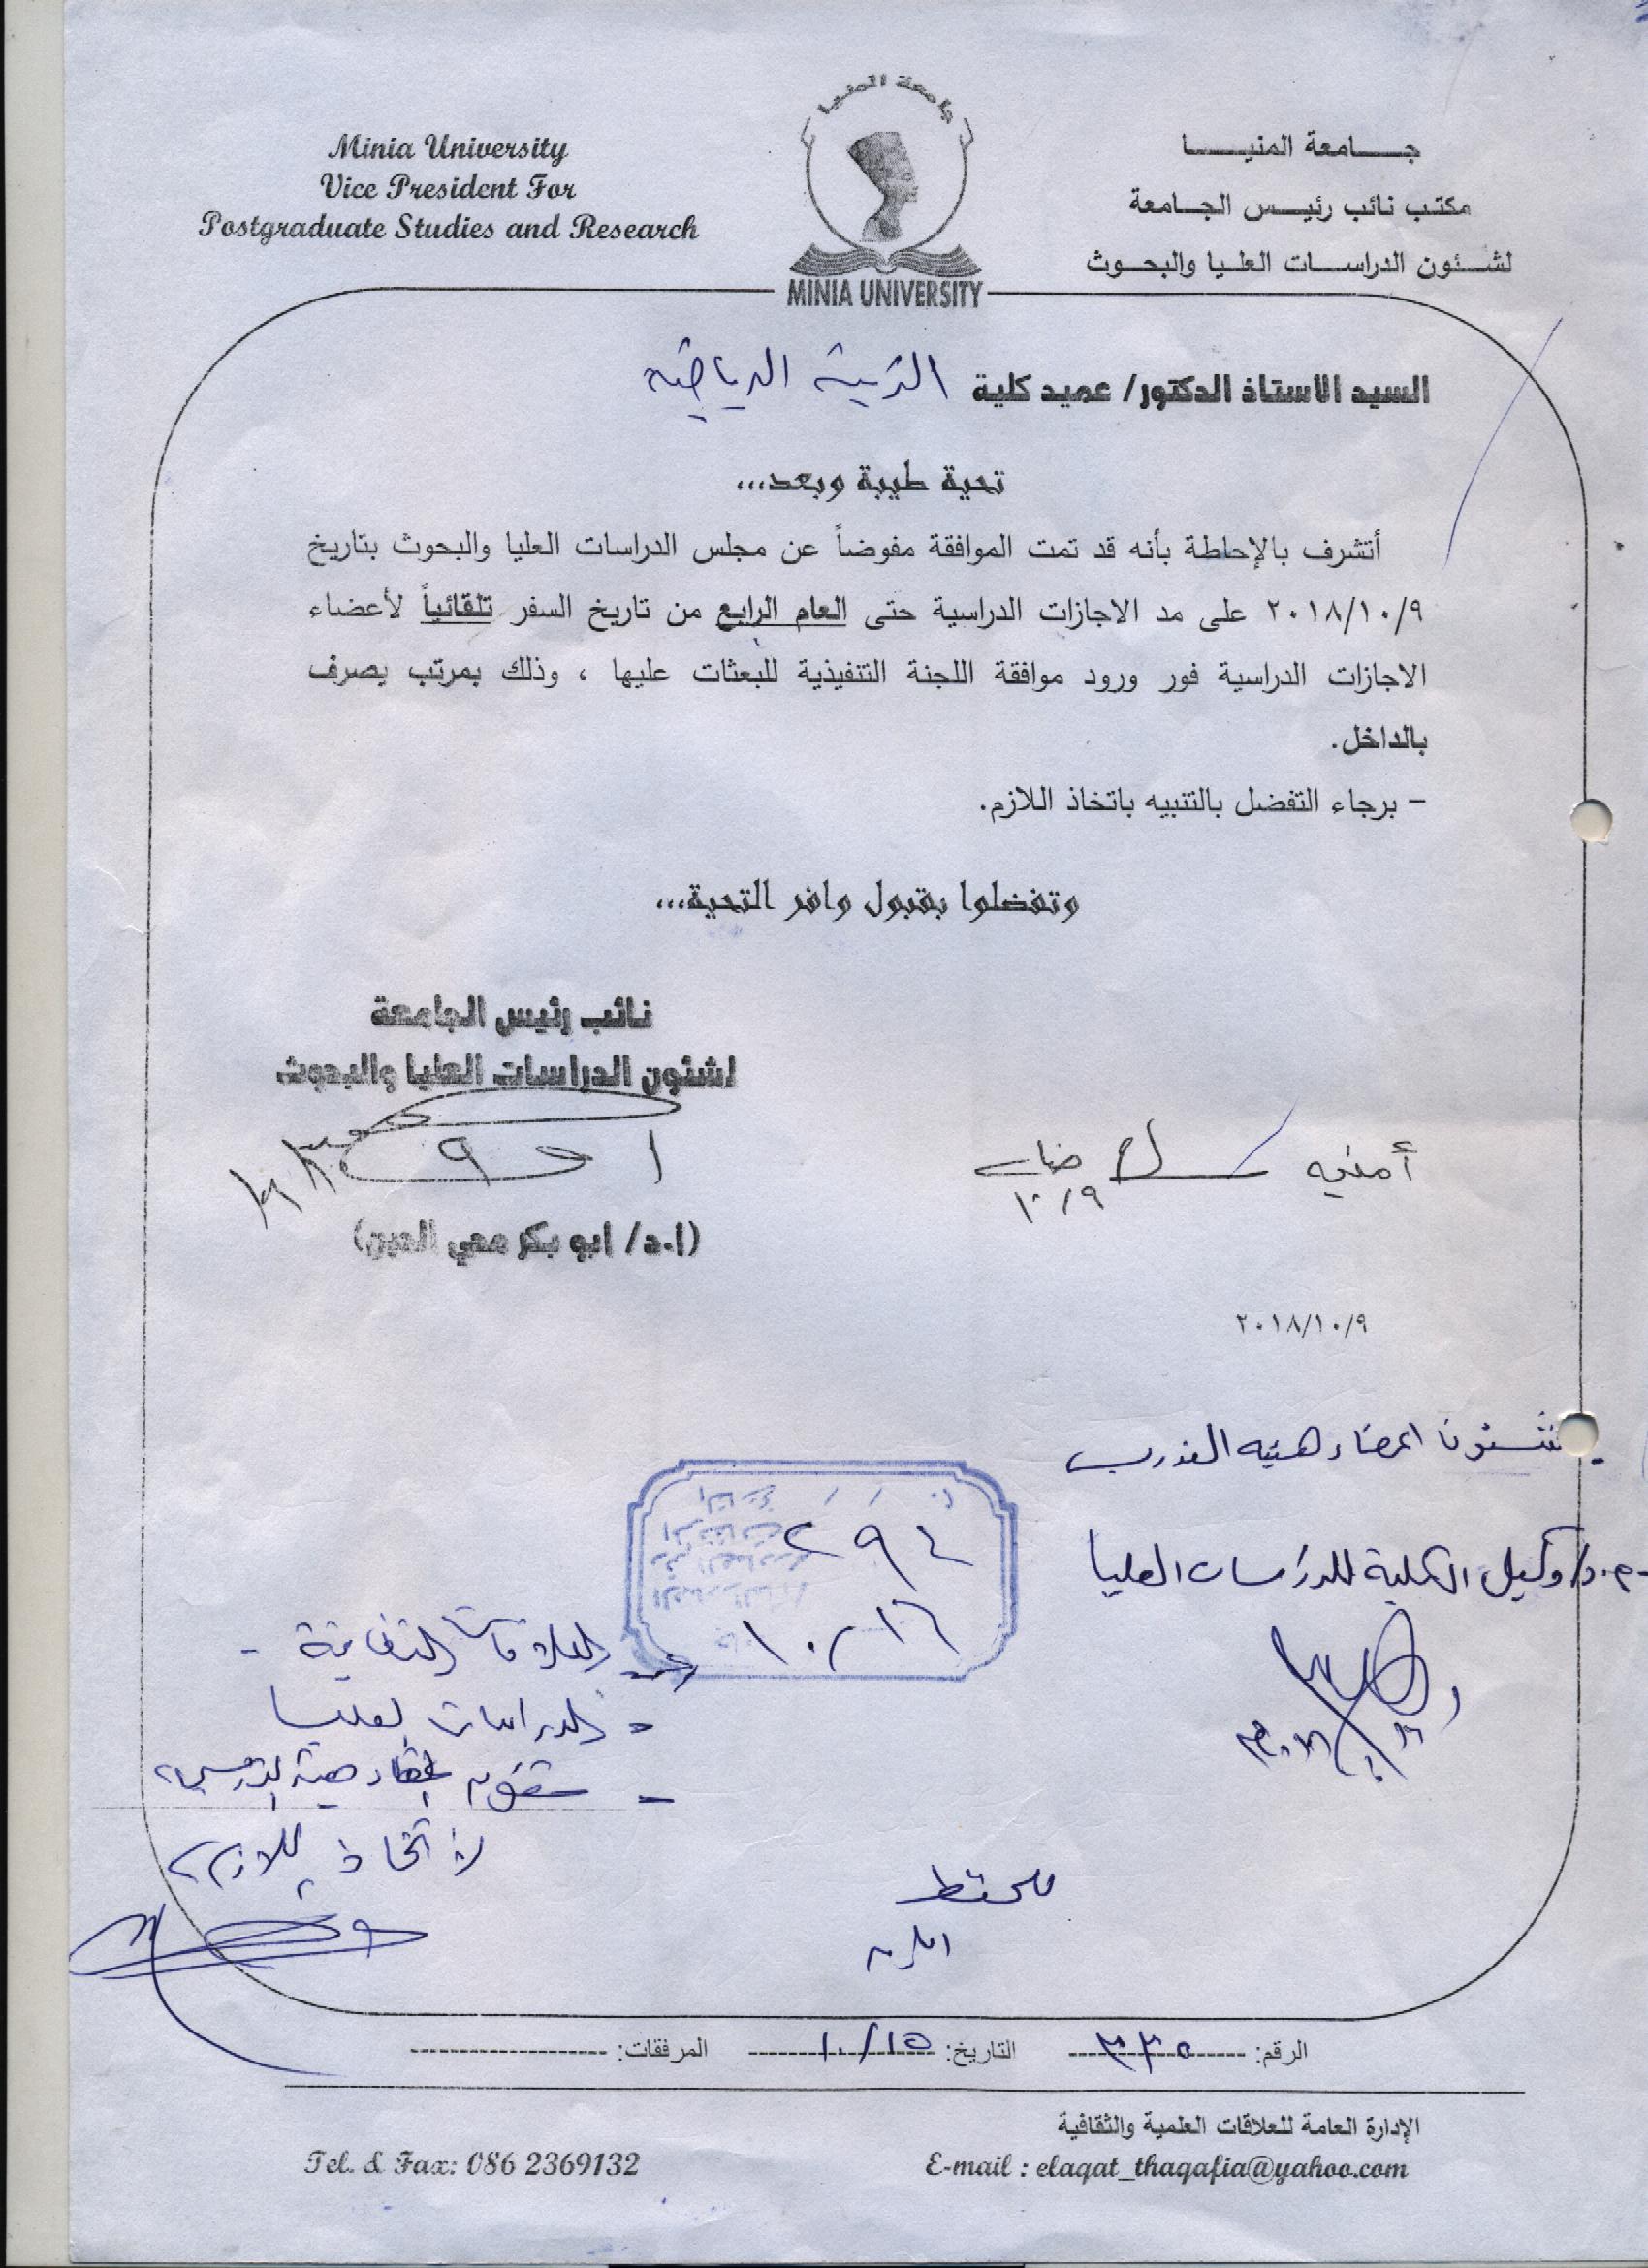 جامعة المنيا
مكتب نائب رئيس الجامعة
لشئون الدراسات العليا والبحوث
جامعة المنيا
MINIA UNIVERSITY
Minia University
Vice President For
Postgraduate Studies and Research
السيد الاستاذ الدكتور/ عميد كلية التربية الرياضية
تحية طيبة وبعد...
أتشرف بالإحاطة بأنه قد تمت الموافقة مفوضاً عن مجلس الدراسات العليا والبحوث بتاريخ
٢٠١٨/١٠/٩ على مد الاجازات الدراسية حتى العام الرابع من تاريخ السفر تلقائياً لأعضاء
الاجازات الدراسية فور ورود موافقة اللجنة التنفيذية للبعثات عليها ، وذلك بمرتب يصرف
بالداخل.
- برجاء التفضل بالتنبيه باتخاذ اللازم.
وتفضلوا بقبول وافر التحية...
نائب رئيس الجامعة
لشئون الدراسات العليا والبحوث
(أ.د/ ابو بكر محي الدين)
أمنيه
١٠/٩
٢٠١٨/١٠/٩
شئون اعضاء هيئه التدريس
وكيل الكلية للدراسات العليا
٢٩٤
١٠/١٦
العلاقات الثقافية -
- الدراسات العليا
- شئون أعضاء هيئة التدريس
لاتخاذ اللازم
الرقم: ٣٣٥ التاريخ: ١٠/١٥ المرفقات:
الإدارة العامة للعلاقات العلمية والثقافية
Tel. & Fax: 086 2369132 E-mail : elaqat_thaqafia@yahoo.com